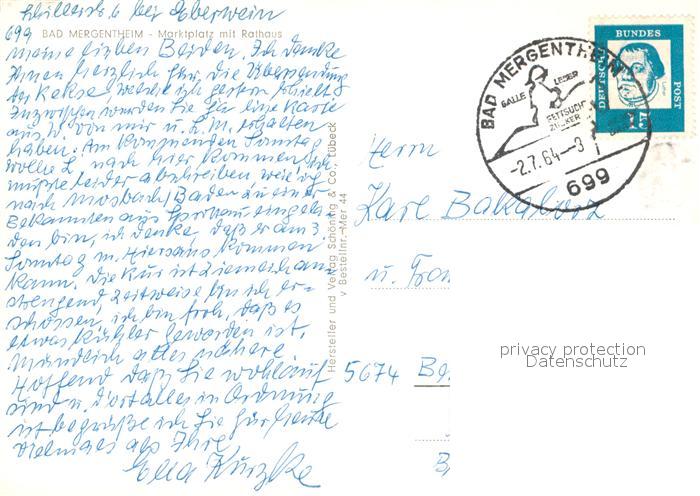 Schillerstr. 6 bei Eberwein
699 BAD MERGENTHEIM - Marktplatz mit Rathaus
Meine lieben Beiden. Ich danke
Ihnen herzlich für die Übersendung
der Kekse, welche ich gestern erhielt
Inzwischen werden Sie ja eine Karte
aus W. von mir u. L. M. erhalten
haben. Am kommenden Sonntag
wollte L. nach hier kommen
mußte leider abschreiben weil ich
nach Mosbach/Baden zu einer
Bekannten aus eingela-
den bin, ich denke, daß er am 3.
Sonntag m. Hiersaus kommen
kann. Die Kur ist ziemlich an-
strengend, zeitweise bin ich er-
schossen, ich bin froh, daß es
etwas kühler geworden ist.
Mündlich alles nähere
Hoffend daß Sie wohlauf
sind u. dort alles in Ordnung
ist begrüße ich Sie für heute
vielmals als Ihre
Ella Kurzke
Hersteller und Verlag Schöning & Co., Lübeck
v Bestellnr.-Mer 44
BAD MERGENTHEIM
GALLE LEBER
FETTSUCHT
ZUCKER
-2.7.64--3
699
DEUTSCHE BUNDESPOST
15
Herrn
Karl Bakalorz
u. Frau
5674 Be
B
privacy protection
Datenschutz